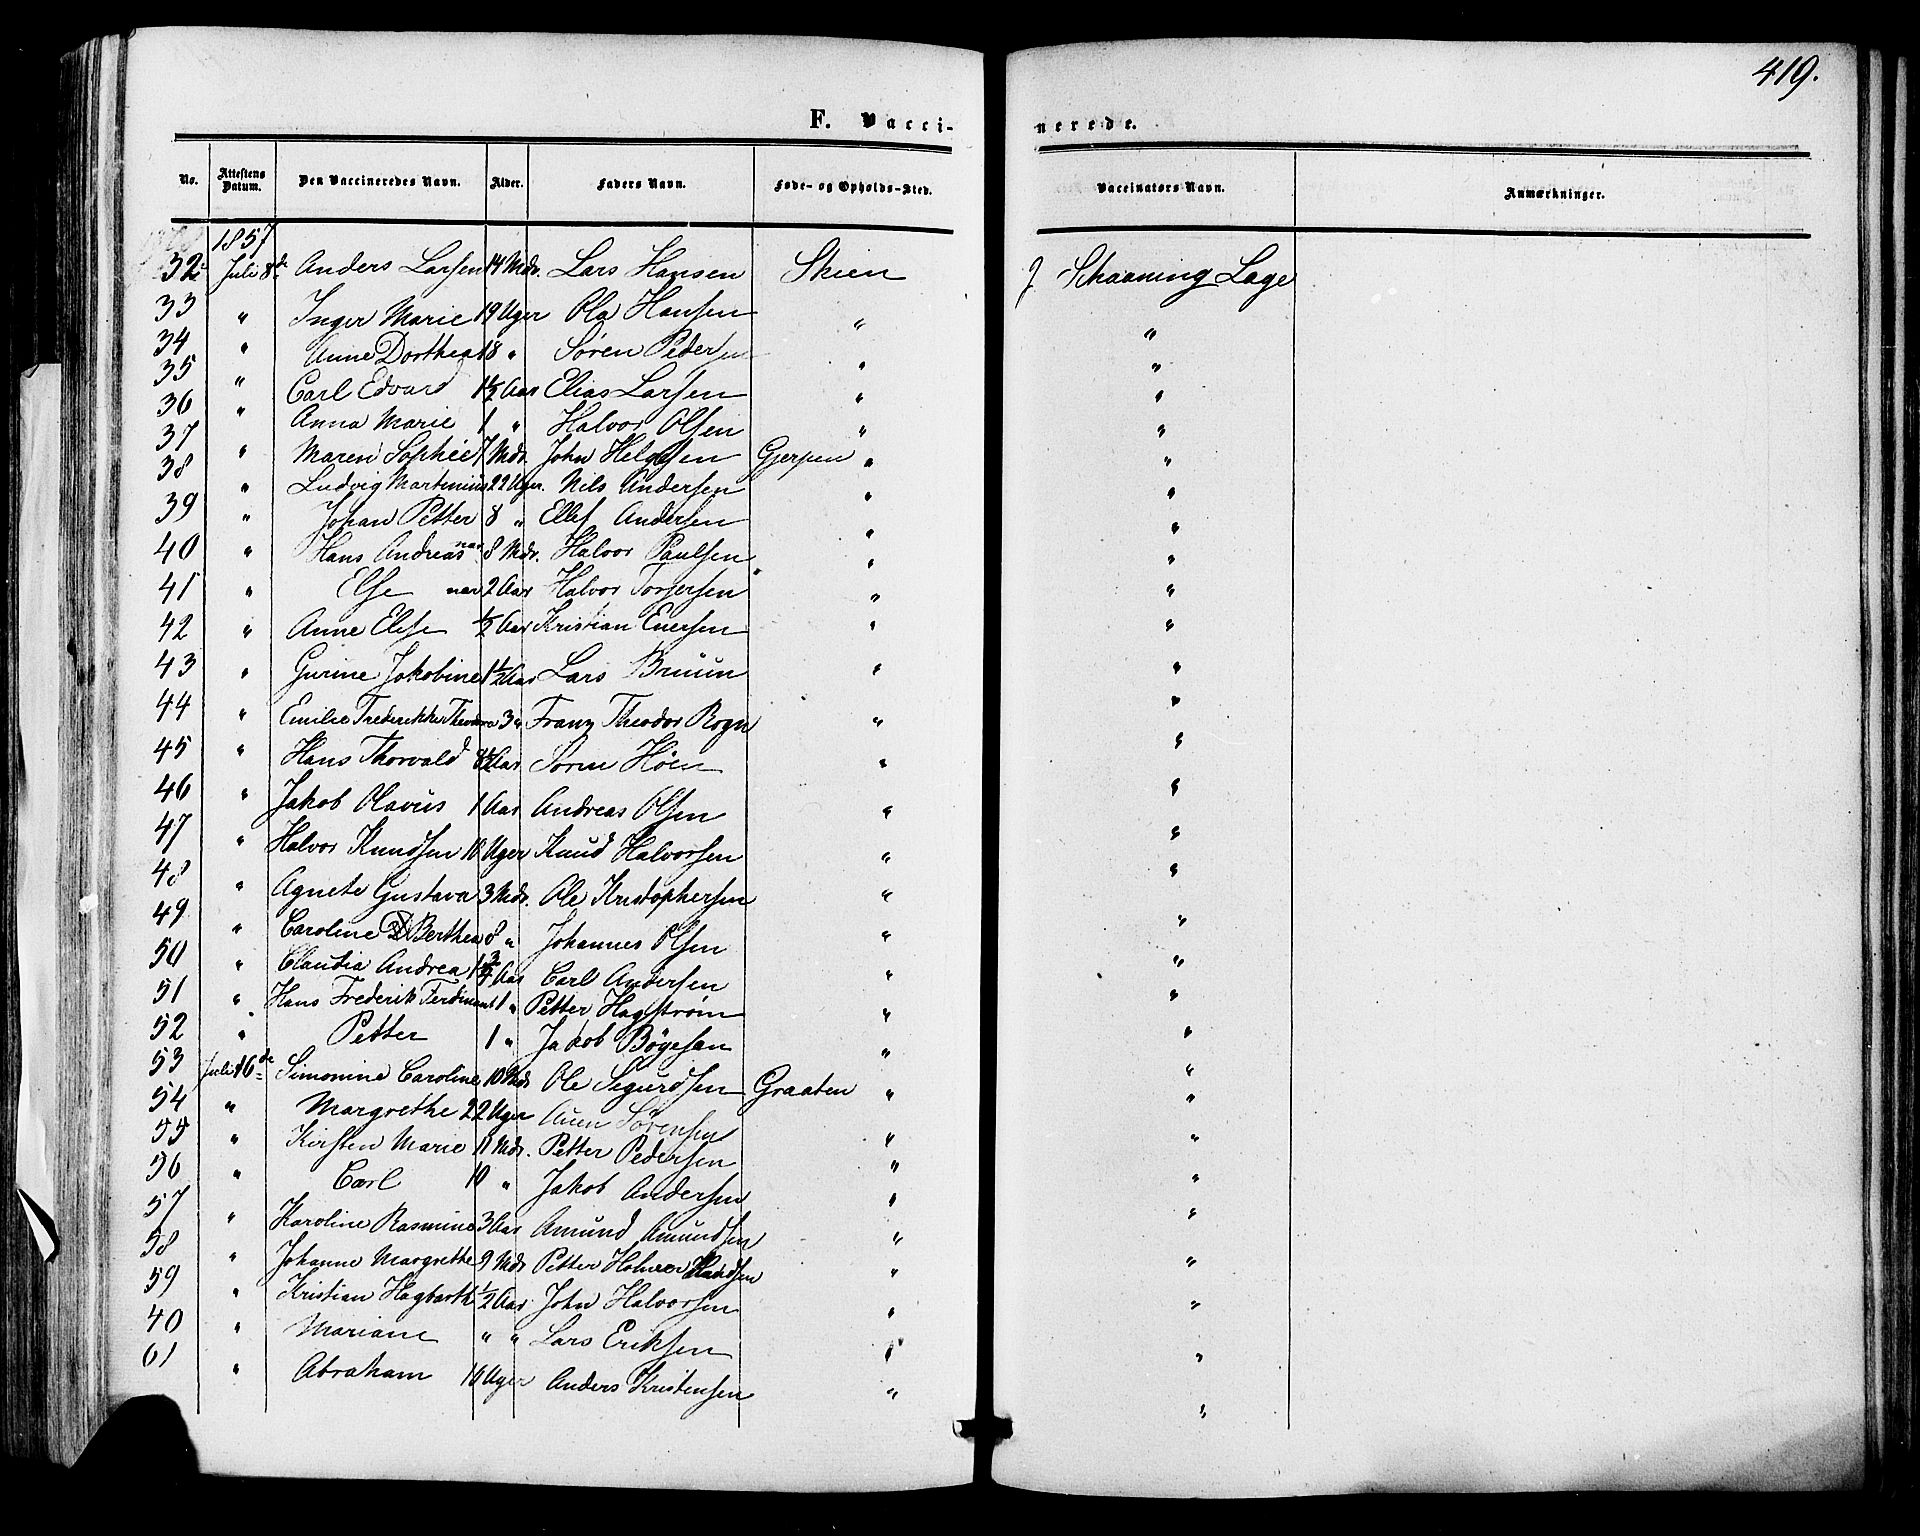 419.
F. Vaccinerede.
No. Attestens Datum. Den Vaccineredes Navn. Alder. Faders Navn. Føde- og Opholds-Sted. Vaccinatørs Navn. Anmærkninger.
1857
32 Juli 8de Anders Larsen 14 Mdr. Lars Hansen Skien J Schaaning Læge
33 " Inger Marie 19 Uger Ola Hansen " "
34 " Anne Dorthea 18 " Søren Pedersen " "
35 " Carl Edvard 1½ Aar Elias Larsen " "
36 " Anna Marie 1 " Halvor Olsen " "
37 " Maren Sophie 7 Mdr. John Helgesen Gjerpen " "
38 " Ludvig Martinius 22 Uger. Nils Andersen " "
39 " Johan Petter 8 " Ellef Andersen " "
40 " Hans Andreas 8 Mdr. Halvor Paulsen " "
41 " Else 2 Aar Halvor Torgersen " "
42 " Anne Elise ½ Aar Kristian Eversen " "
43 " Gurine Jakobine 1½ Aar Lars Bruun " "
44 " Emilie Frederikke Theodora 3 " Franz Theodor Rogn " "
45 " Hans Thorvald 8½ Aar Søren Höen " "
46 " Jakob Olavus 1 Aar Andreas Olsen " "
47 " Halvor Knudsen 10 Uger Knud Halvorsen " "
48 " Agnete Gustava 3 Mdr. Ole Kristophersen " "
49 " Caroline Berthea 8 " Johannes Olsen " "
50 " Claudia Andrea 1¾ Aar Carl Andersen " "
51 " Hans Frederik Ferdinant 1 " Petter Hagstrøm " "
52 " Petter 1 " Jakob Bögesen " "
53 Juli 16de Simonine Caroline 10 Mdr Ole Sigurdsen Graaten " "
54 " Margrethe 22 Uger Auen Sørensen " "
55 " Kirsten Marie 11 Mdr. Petter Pedersen " "
56 " Carl 10 " Jakob Andersen " "
57 " Karoline Rasmine 3 Aar Amund Amundsen " "
58 " Johanne Margrethe 9 Mdr Petter Holmer " "
59 " Kristian Hagbarth ½ Aar John Halvorsen " "
40 " Mariane " " Lars Eriksen " "
61 " Abraham 16 Uger Anders Kristensen " "